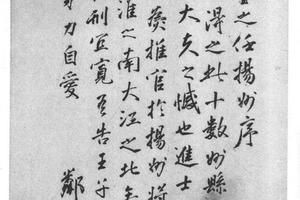 之任揚州序
得之此十數州縣
大夫之憾也進士
䕫推官於揚州將
淮之南大江之北
刑宜寬吾告王子
力自愛
鄰